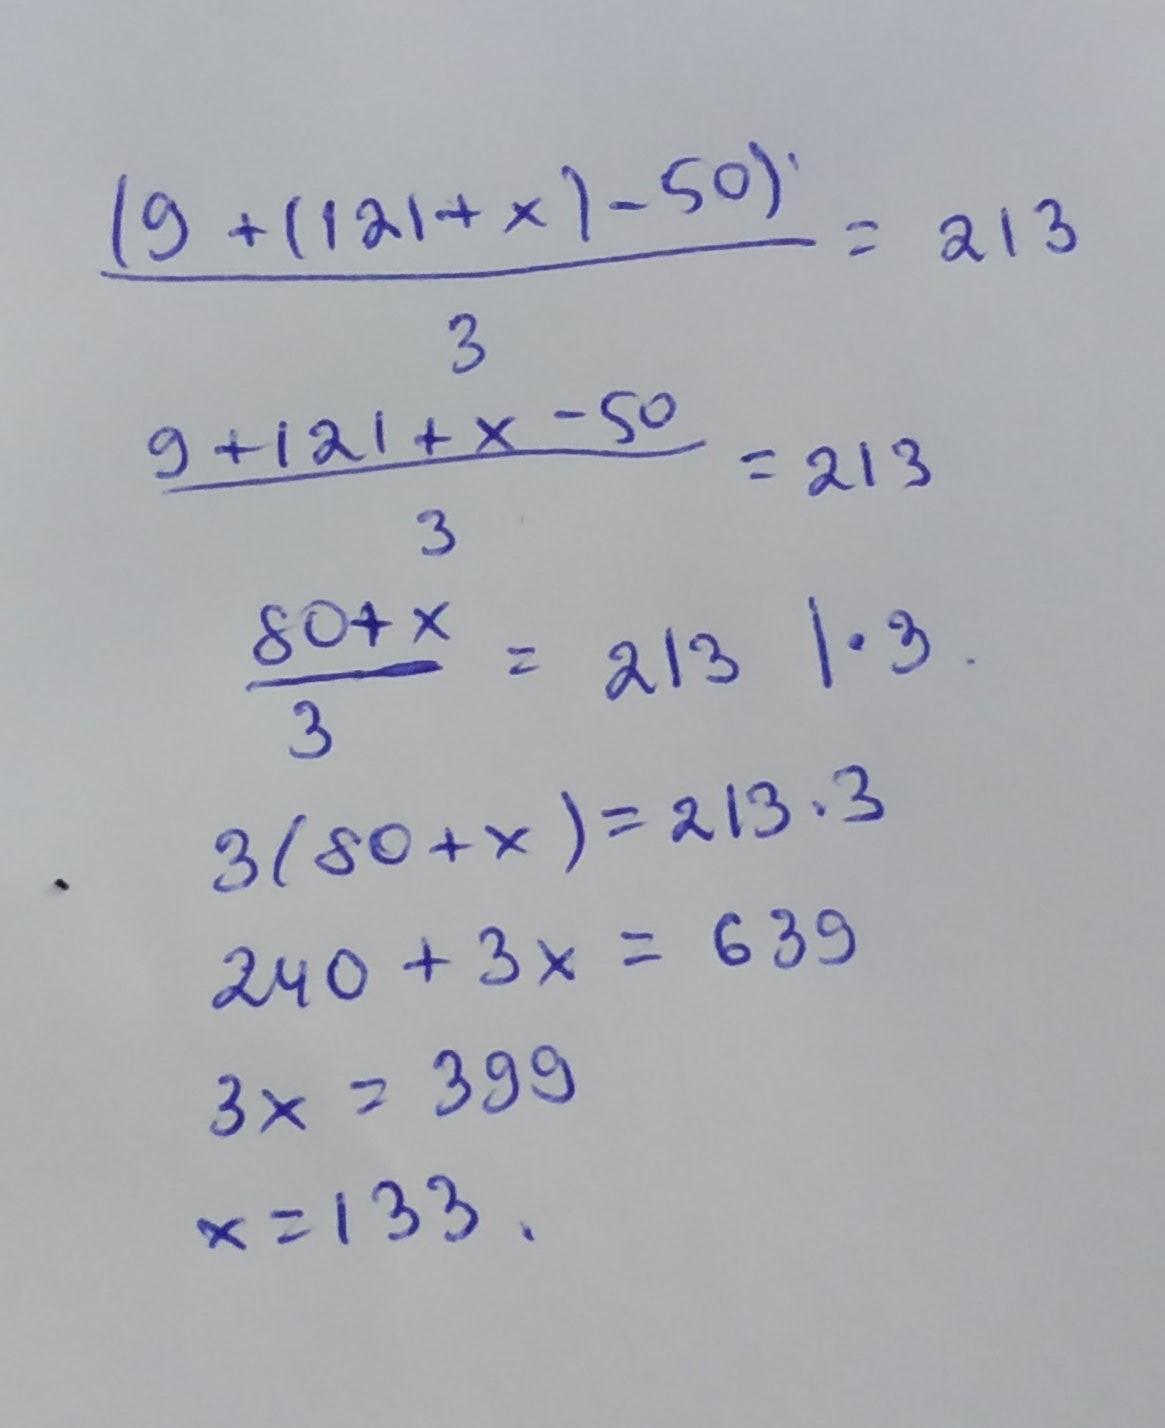 (9 + (121 + x) - 50) / 3 = 213
9 + 121 + x - 50 / 3 = 213
80 + x / 3 = 213 | · 3
3(80 + x) = 213 · 3
240 + 3x = 639
3x = 399
x = 133.